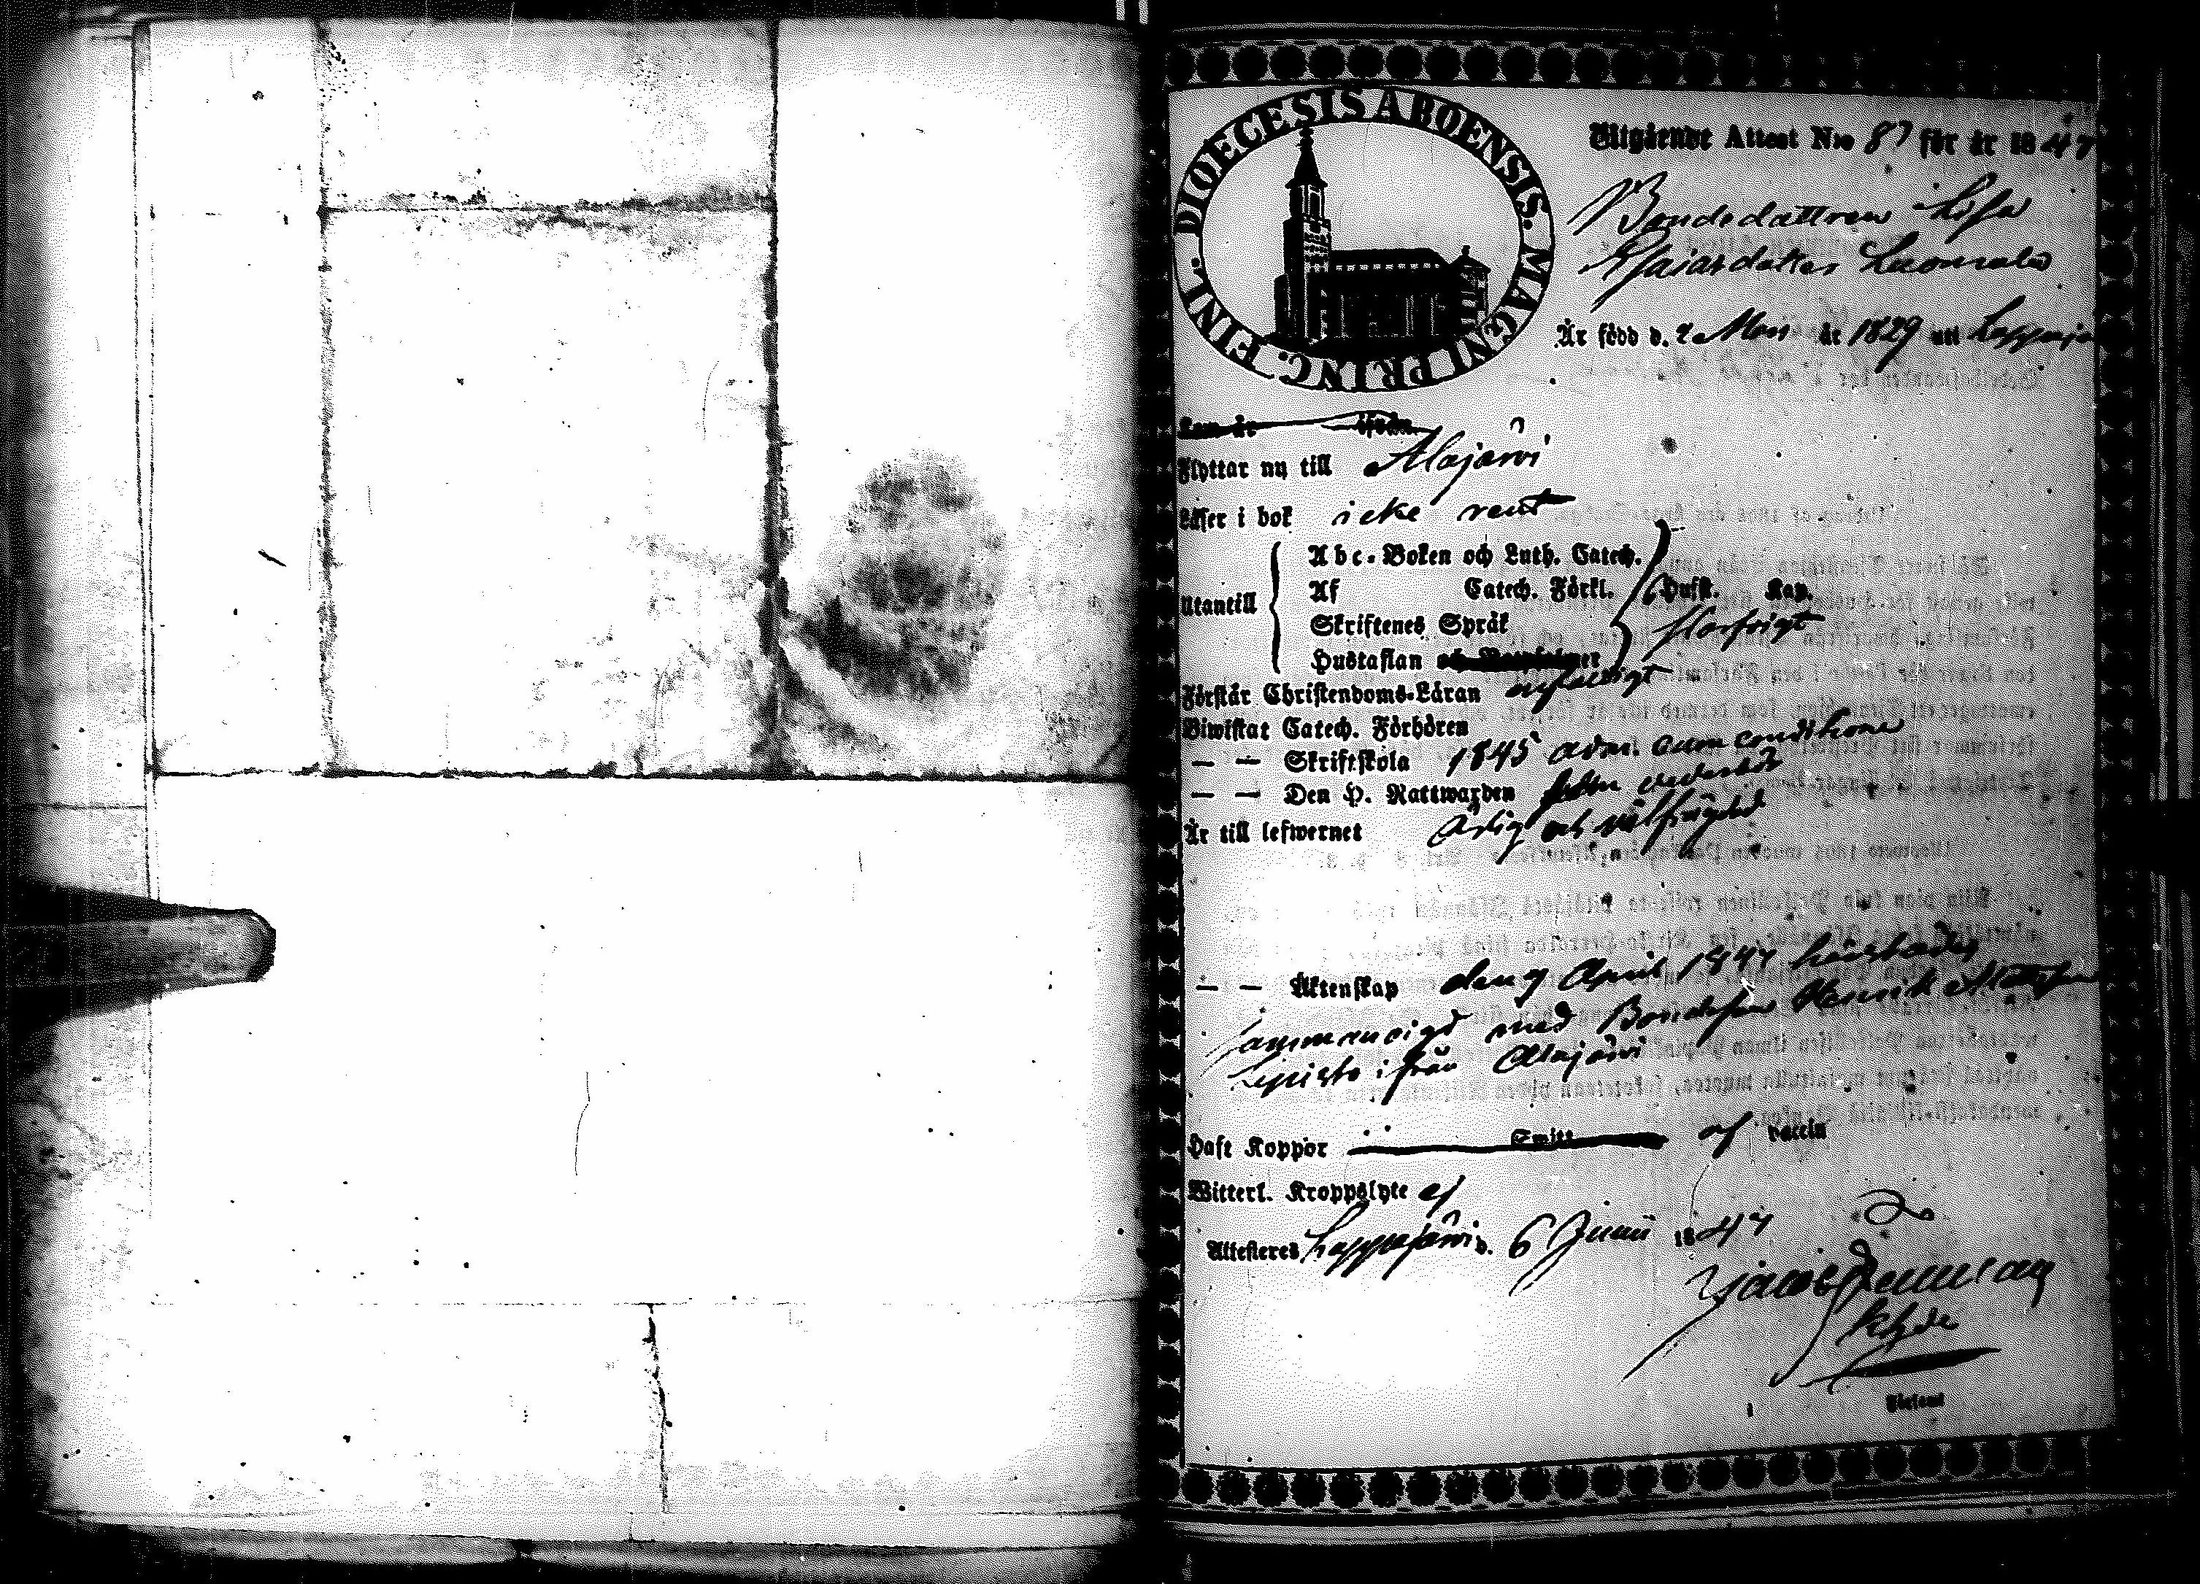 DIOECESIS ABOENSIS. MAGNI PRINC. FINL.
Utgående Attest N:o 87 för år 1847
Bondedottren Lisa
Är född d. 2 Mars år 1829 uti Lappajä
Flyttar nu till Alajärvi
Läser i bok icke rent
Utantill
Abc-Boken och Luth. Catech.
Af Catech. Förkl. Husk. Kap.
Skriftenes Språk
Hustaflan
Förstår Christendoms-Läran enfaldigt
Biwistat Catech. Förhören
— — Skriftskola 1845 adm. cum conditione
— — Den H. Nattwarden sedan
Är till lefwernet Ärlig och välfrägdad
— — Äktenskap den 9 April 1847
Sammanvigd med Bondeson Henrik
Lepistö ifrån Alajärvi
Haft Koppor Smitt af vaccin
Witterl. Kroppslyte ej
Attesteres Lappajärvi d. 6 Junii 1847